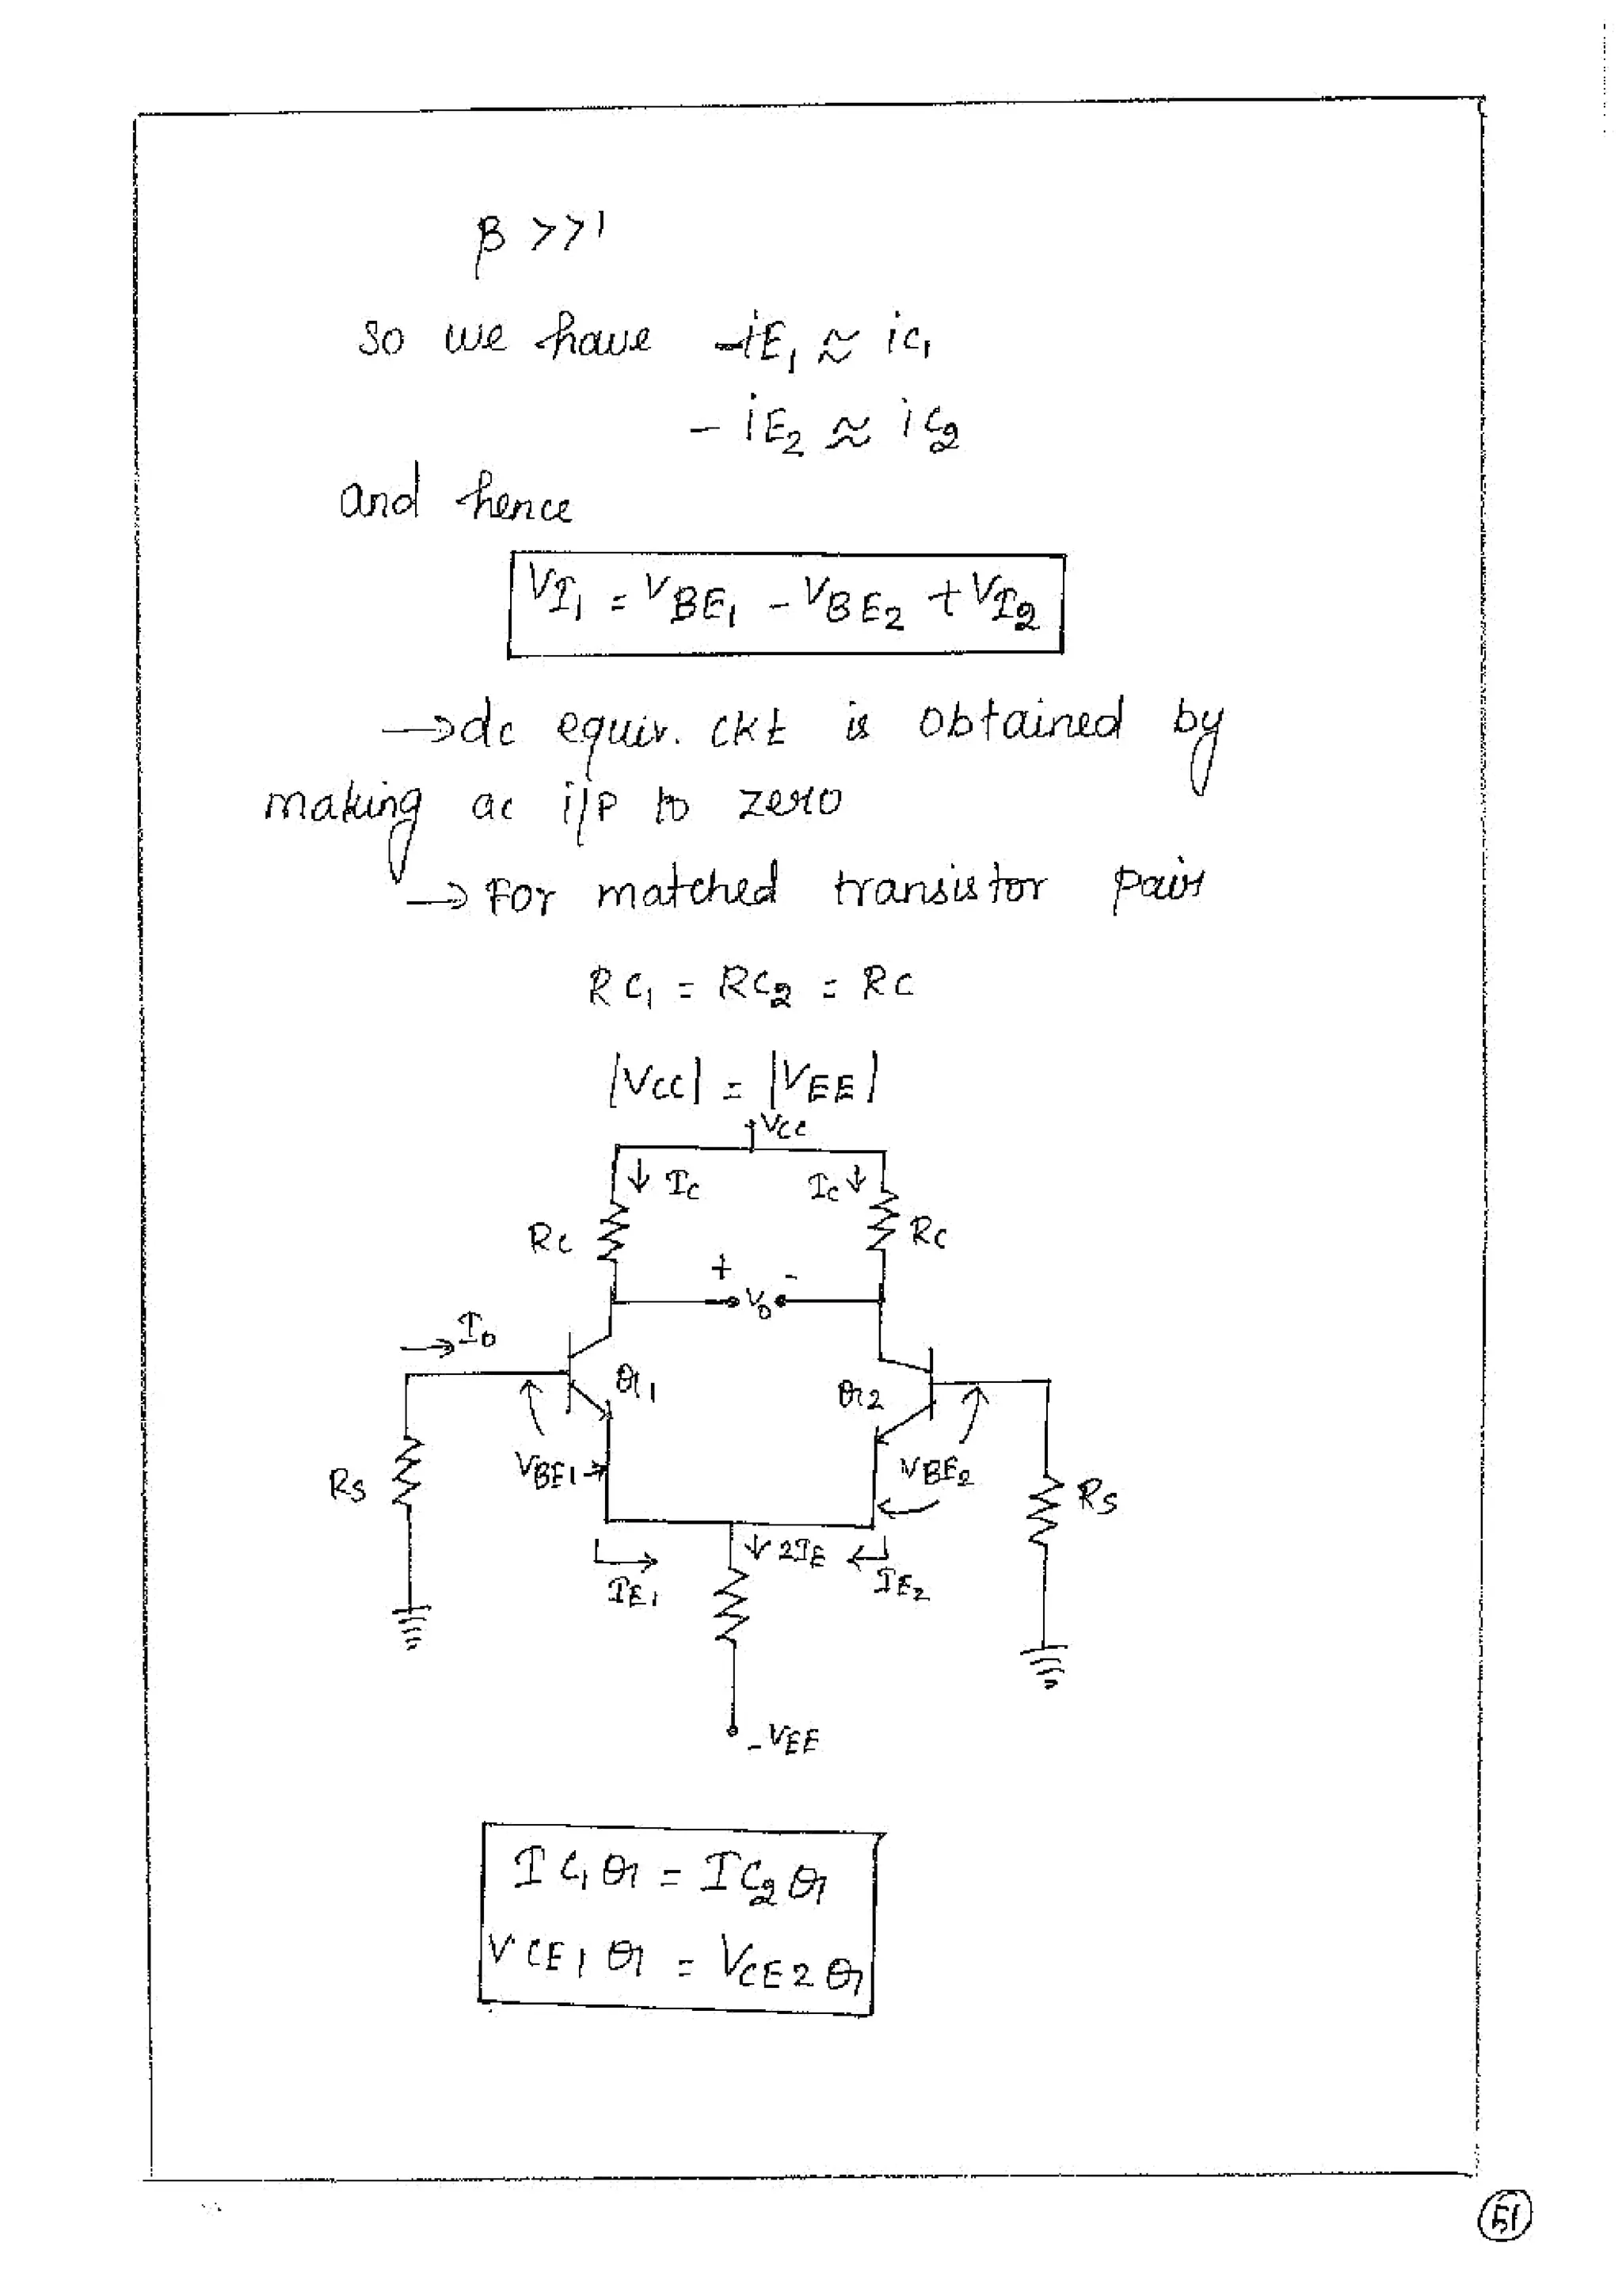 β >>1
So we have -iE1 ≈ iC1
- iE2 ≈ iC2
and hence
VI1 = VBE1 - VBE2 + VI2
→ dc equiv. ckt is obtained by
making ac i/p to zero
→ For matched transistor pair
RC1 = RC2 = RC
|VCC| = |VEE|
VCC
↓ IC IC ↓
RC RC
+ -
V0
→ I0
Q1 Q2
VBE1 VBE2
RS RS
↓ 2IE
IE1 IE2
-VEE
IC1Q = IC2Q
VCE1Q = VCE2Q
51